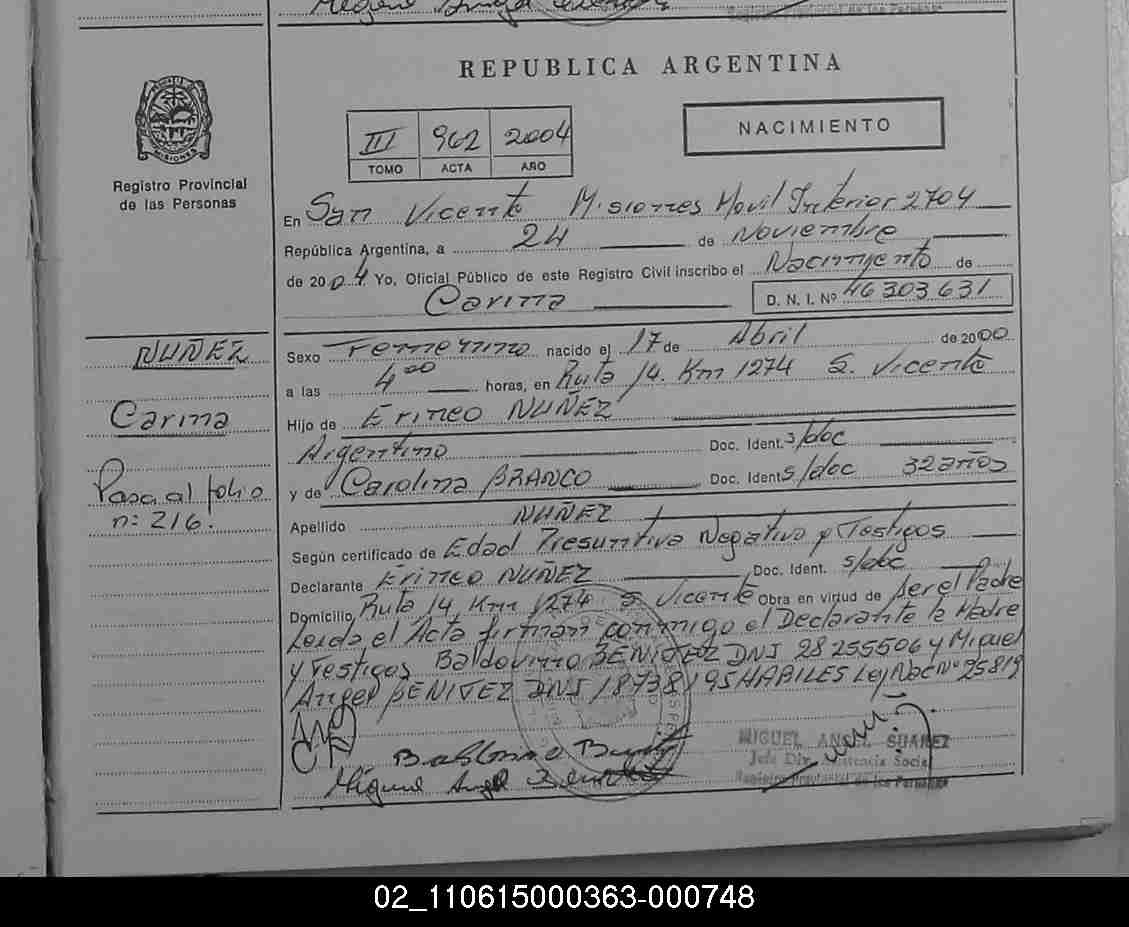 REPUBLICA ARGENTINA
MISIONES
Registro Provincial
de las Personas
III 962 2004
TOMO ACTA AÑO
NACIMIENTO
En San Vicente Misiones Movil Interior 2704
República Argentina, a 24 de Noviembre
de 2004 Yo, Oficial Público de este Registro Civil inscribo el Nacimiento de
Carina
D. N. I. Nº 46303631
NUÑEZ
Carina
Pasa al folio
nº: 216.
Sexo Femenino nacido el 17 de Abril de 2000
a las 4 00 horas, en Ruta 14. Km 1274 S. Vicente
Hijo de Erineo NUÑEZ
Argentino Doc. Ident. s/doc
y de Carolina BRANCO Doc. Ident. s/doc 32 años
Apellido NUÑEZ
Según certificado de Edad Presuntiva Negativo y Testigos
Declarante Erineo NUÑEZ Doc. Ident. s/doc
Domicilio Ruta 14, Km 1274 S. Vicente Obra en virtud de ser el Padre
Leida el Acta firman conmigo el Declarante la Madre
y Testigos Baldovino BENITEZ DNI 28255506 y Miguel
Angel BENITEZ DNI 18738195 HABILES Ley Nac Nº 25819
MIGUEL ANGEL SUAREZ
Jefe Div. Asistencia Social
Registro Provincial de las Personas
Miguel Angel
02_110615000363-000748